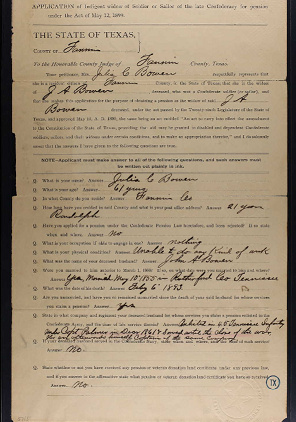 APPLICATION of Indigent widow of Soldier or Sailor of the late Confederacy for pension
under the Act of May 12, 1899.
THE STATE OF TEXAS,
County of Fannin
To the Honorable County Judge of Fannin County, Texas.
Your petitioner, Mrs. Julia C Bowen respectfully represents that
she is a resident of Fannin County, in the State of Texas, that she is the widow
of J A Bowen deceased, who was a Confederate soldier
makes this application for the purpose of obtaining a pension as the widow of said J A
Bowen deceased, under the act passed by the Legislature of the State of
Texas, and approved May 12, A. D. 1899, the same being an act entitled "An act to carry into effect the amendment
to the Constitution of the State of Texas, providing that aid may be granted to disabled and dependent Confederate
soldiers, sailors and their widows under certain conditions, and to make an appropriation therefor," and I do solemnly
swear that the answers I have given to the following questions are true.
NOTE—Applicant must make answer to all of the following questions, and such answers must
be written out plainly in ink.
Q. What is your name? Answer. Julia C Bowen
Q. What is your age? Answer. 61 years
Q. In what County do you reside? Answer. Fannin Co
Q. How long have you resided in said County and what is your post office address? Answer. 21 years
Randolph
Q. Have you applied for a pension under the Confederate Pension Law heretofore, and been rejected? If so state
when and where. Answer. No
Q. What is your occupation if able to engage in one? Answer. nothing
Q. What is your physical condition? Answer. Unable to do any kind of work
Q. What was the name of your deceased husband? Answer. John A Bowen
Q. Were you married to him anterior to March 1, 1866? If so, on what date were you married to him and where?
Q. What was the date of his death? Answer. Feby 6 1883
Q. Are you unmarried, and have you so remained unmarried since the death of your said husband for whose services
you claim a pension? Answer. yes
Q. State in what company and regiment your deceased husband for whose services you claim a pension enlisted in the
Confederate Army, and the time of his service
Answer. No.
Q. State whether or not you have received any pension or veteran donation land certificate under any previous law,
and if you answer in the affirmative state what pension or veteran donation land certificate you have so received.
Answer. No.